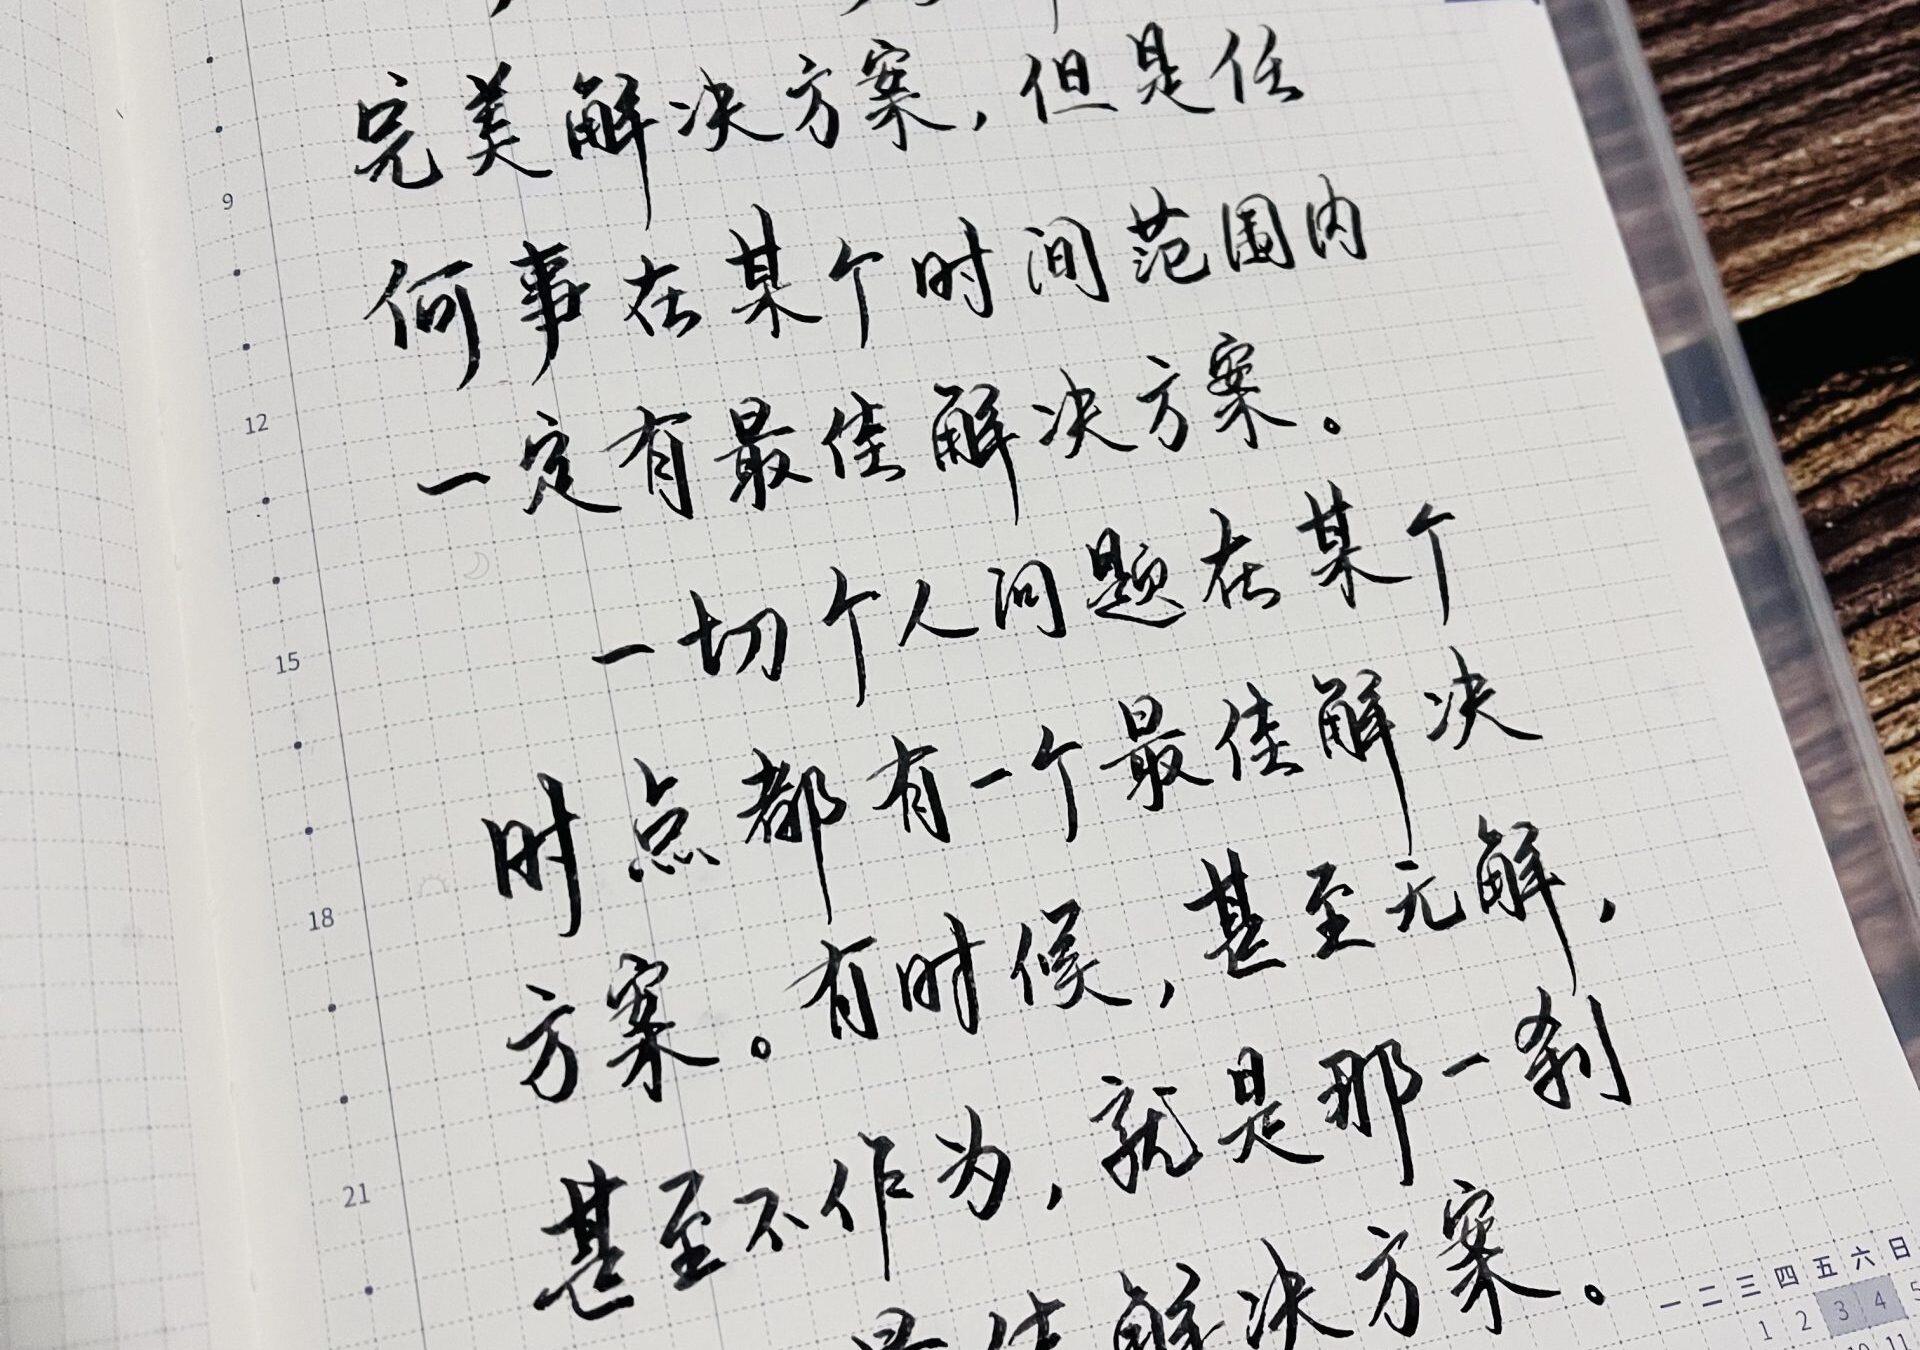 完美解决方案，但是任
何事在某个时间范围内
一定有最佳解决方案。
一切个人问题在某个
时点都有一个最佳解决
方案。有时候，甚至无解，
甚至不作为，就是那一刹
最佳解决方案。
9
12
15
18
21
一 二 三 四 五 六 日
1 2 3 4 5
10 11